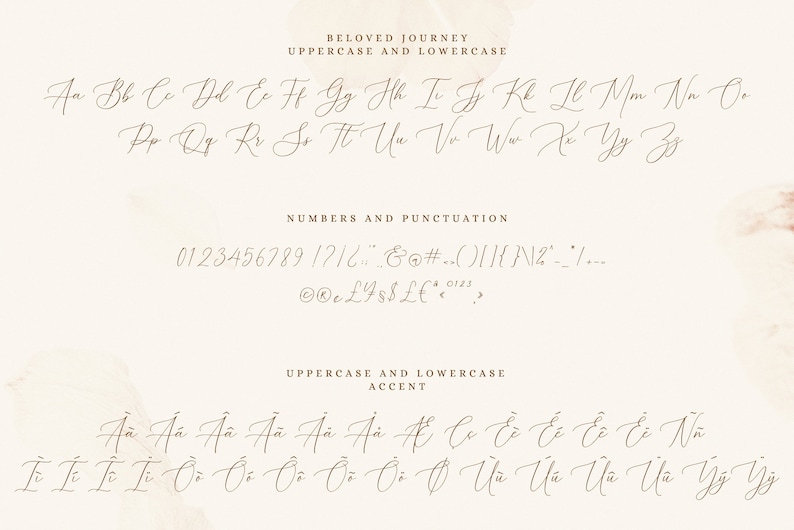 BELOVED JOURNEY
UPPERCASE AND LOWERCASE
Aa Bb Cc Dd Ee Ff Gg Hh Ii Jj Kk Ll Mm Nn Oo
Pp Qq Rr Ss Tt Uu Vv Ww Xx Yy Zz
NUMBERS AND PUNCTUATION
0123456789 !?¡¿:;'".,&@#<>()[]{}\|%^-_*/+-=
©®¢£¥§$£€ª‹0123›
UPPERCASE AND LOWERCASE
ACCENT
Àà Áá Ââ Ãã Ää Åå Æ Çç Èè Éé Êê Ëë Ññ
Ìì Íí Îî Ïï Òò Óó Ôô Õõ Öö Ø Ùù Úú Ûû Üü Ýý Ÿÿ